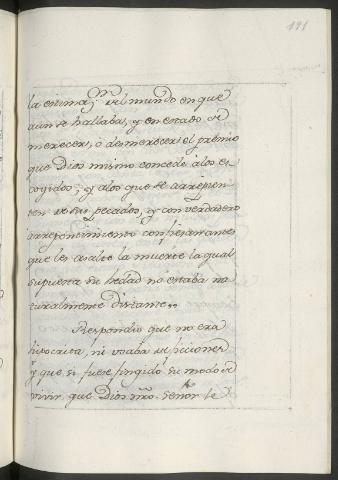 191
la encima, del mundo en que
aun se hallaba, y en estado de
merecer, ò desmerecer el premio
que Dios mismo concede alos es-
cogidos, y alos que se arrepien-
ten de sus pecados, y con verdadero
arrepentimiento confiesan antes
que les asalte la muerte la qual
supuesta su hedad no estaba na-
turalmente distante.,
Respondio que no era
hipocrita, ni usaba de ficciones
y que si fuese fingido su modo de
vivir, que Dios nro. Señor le